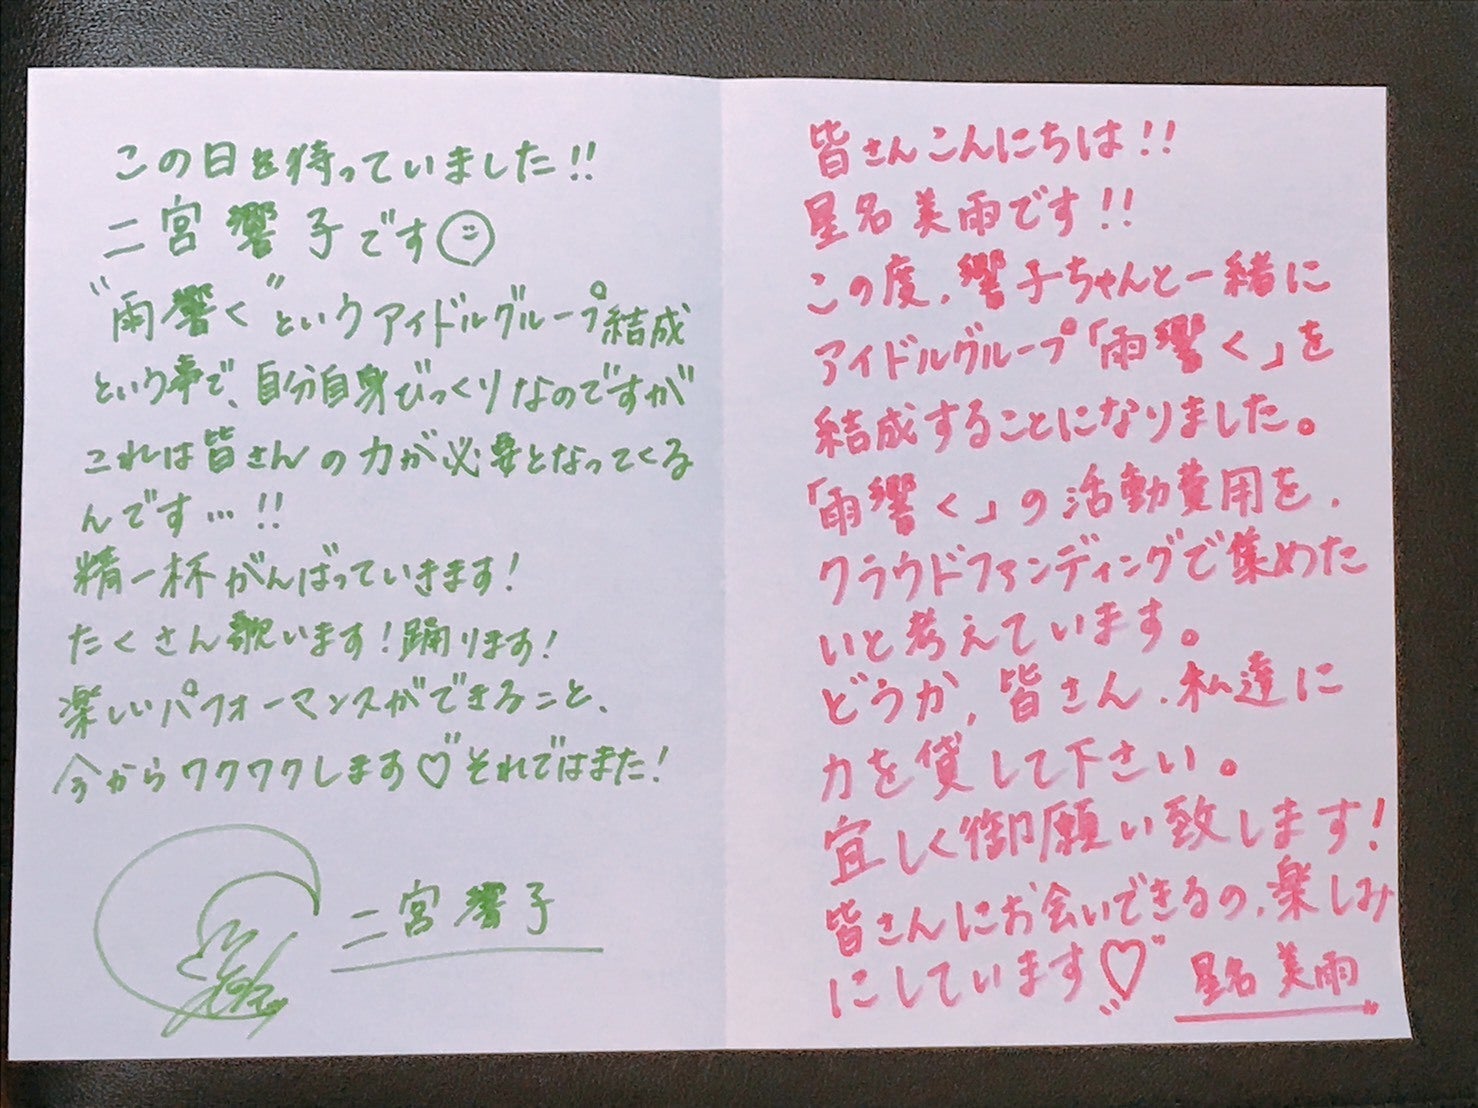 この日を待っていました!!
二宮響子です
"雨響く"というアイドルグループ結成
という事で、自分自身びっくりなのですが
これは皆さんの力が必要となってくる
んです…!!
精一杯がんばっていきます!
たくさん歌います!踊ります!
楽しいパフォーマンスができること、
今からワクワクします♡"それではまた!
二宮響子
皆さんこんにちは!!
星名美雨です!!
この度、響子ちゃんと一緒に
アイドルグループ「雨響く」を
結成することになりました。
「雨響く」の活動費用を、
クラウドファンディングで集めた
いと考えています。
どうか、皆さん、私達に
力を貸して下さい。
宜しく御願い致します!
皆さんにお会いできるの、楽しみ
にしています♡" 星名美雨